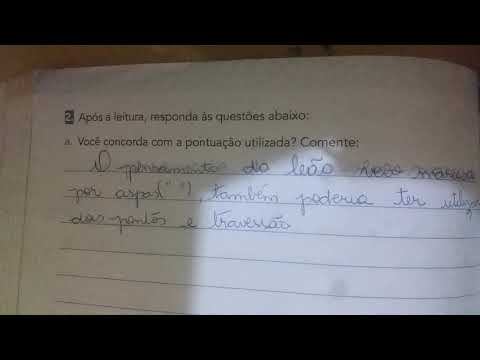 2. Após a leitura, responda às questões abaixo:
a. Você concorda com a pontuação utilizada? Comente:
O pensamento do leão
por aspas(" "), também poderia ter
dois pontos e travessão